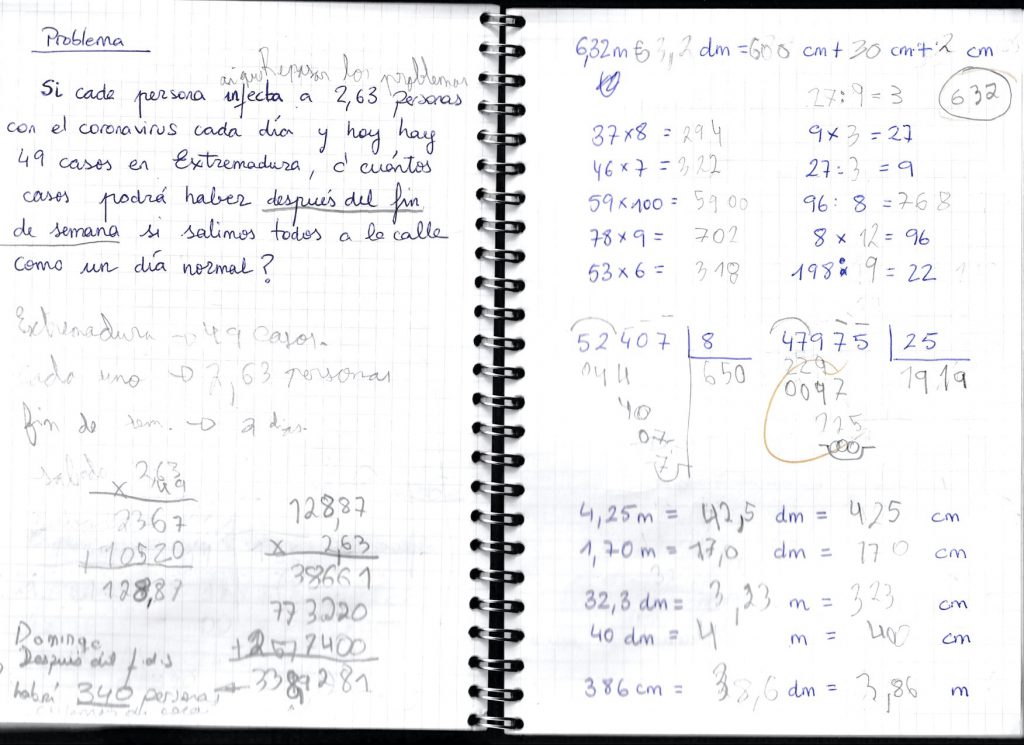 Problema
Repasar los problemas
Si cada persona infecta a 2,63 personas
con el coronavirus cada día y hoy hay
49 casos en Extremadura, ¿cuántos
casos podrá haber después del fin
de semana si salimos todos a la calle
como un día normal?
Extremadura → 49 casos.
cada uno → 2,63 personas
fin de sem. → 2 días.
sabado 2,63
x 49
2367
+10520
128,87
128,87
x 2,63
38661
773220
+2577400
338,9281
Domingo
Después del f.d.s
habrá 340 personas
6,32m = 63,2 dm = 600 cm + 30 cm + 2 cm
27 : 9 = 3
632
37 x 8 = 294
9 x 3 = 27
46 x 7 = 322
27 : 3 = 9
59 x 100 = 5900
96 : 8 = 768
78 x 9 = 702
8 x 12 = 96
53 x 6 = 318
198 : 9 = 22
52407 8
044 650
40
07
7
47975 25
229 1919
0047
225
000
4,25 m = 42,5 dm = 425 cm
1,70 m = 17,0 dm = 170 cm
32,3 dm = 3,23 m = 323 cm
40 dm = 4 m = 400 cm
386 cm = 38,6 dm = 3,86 m